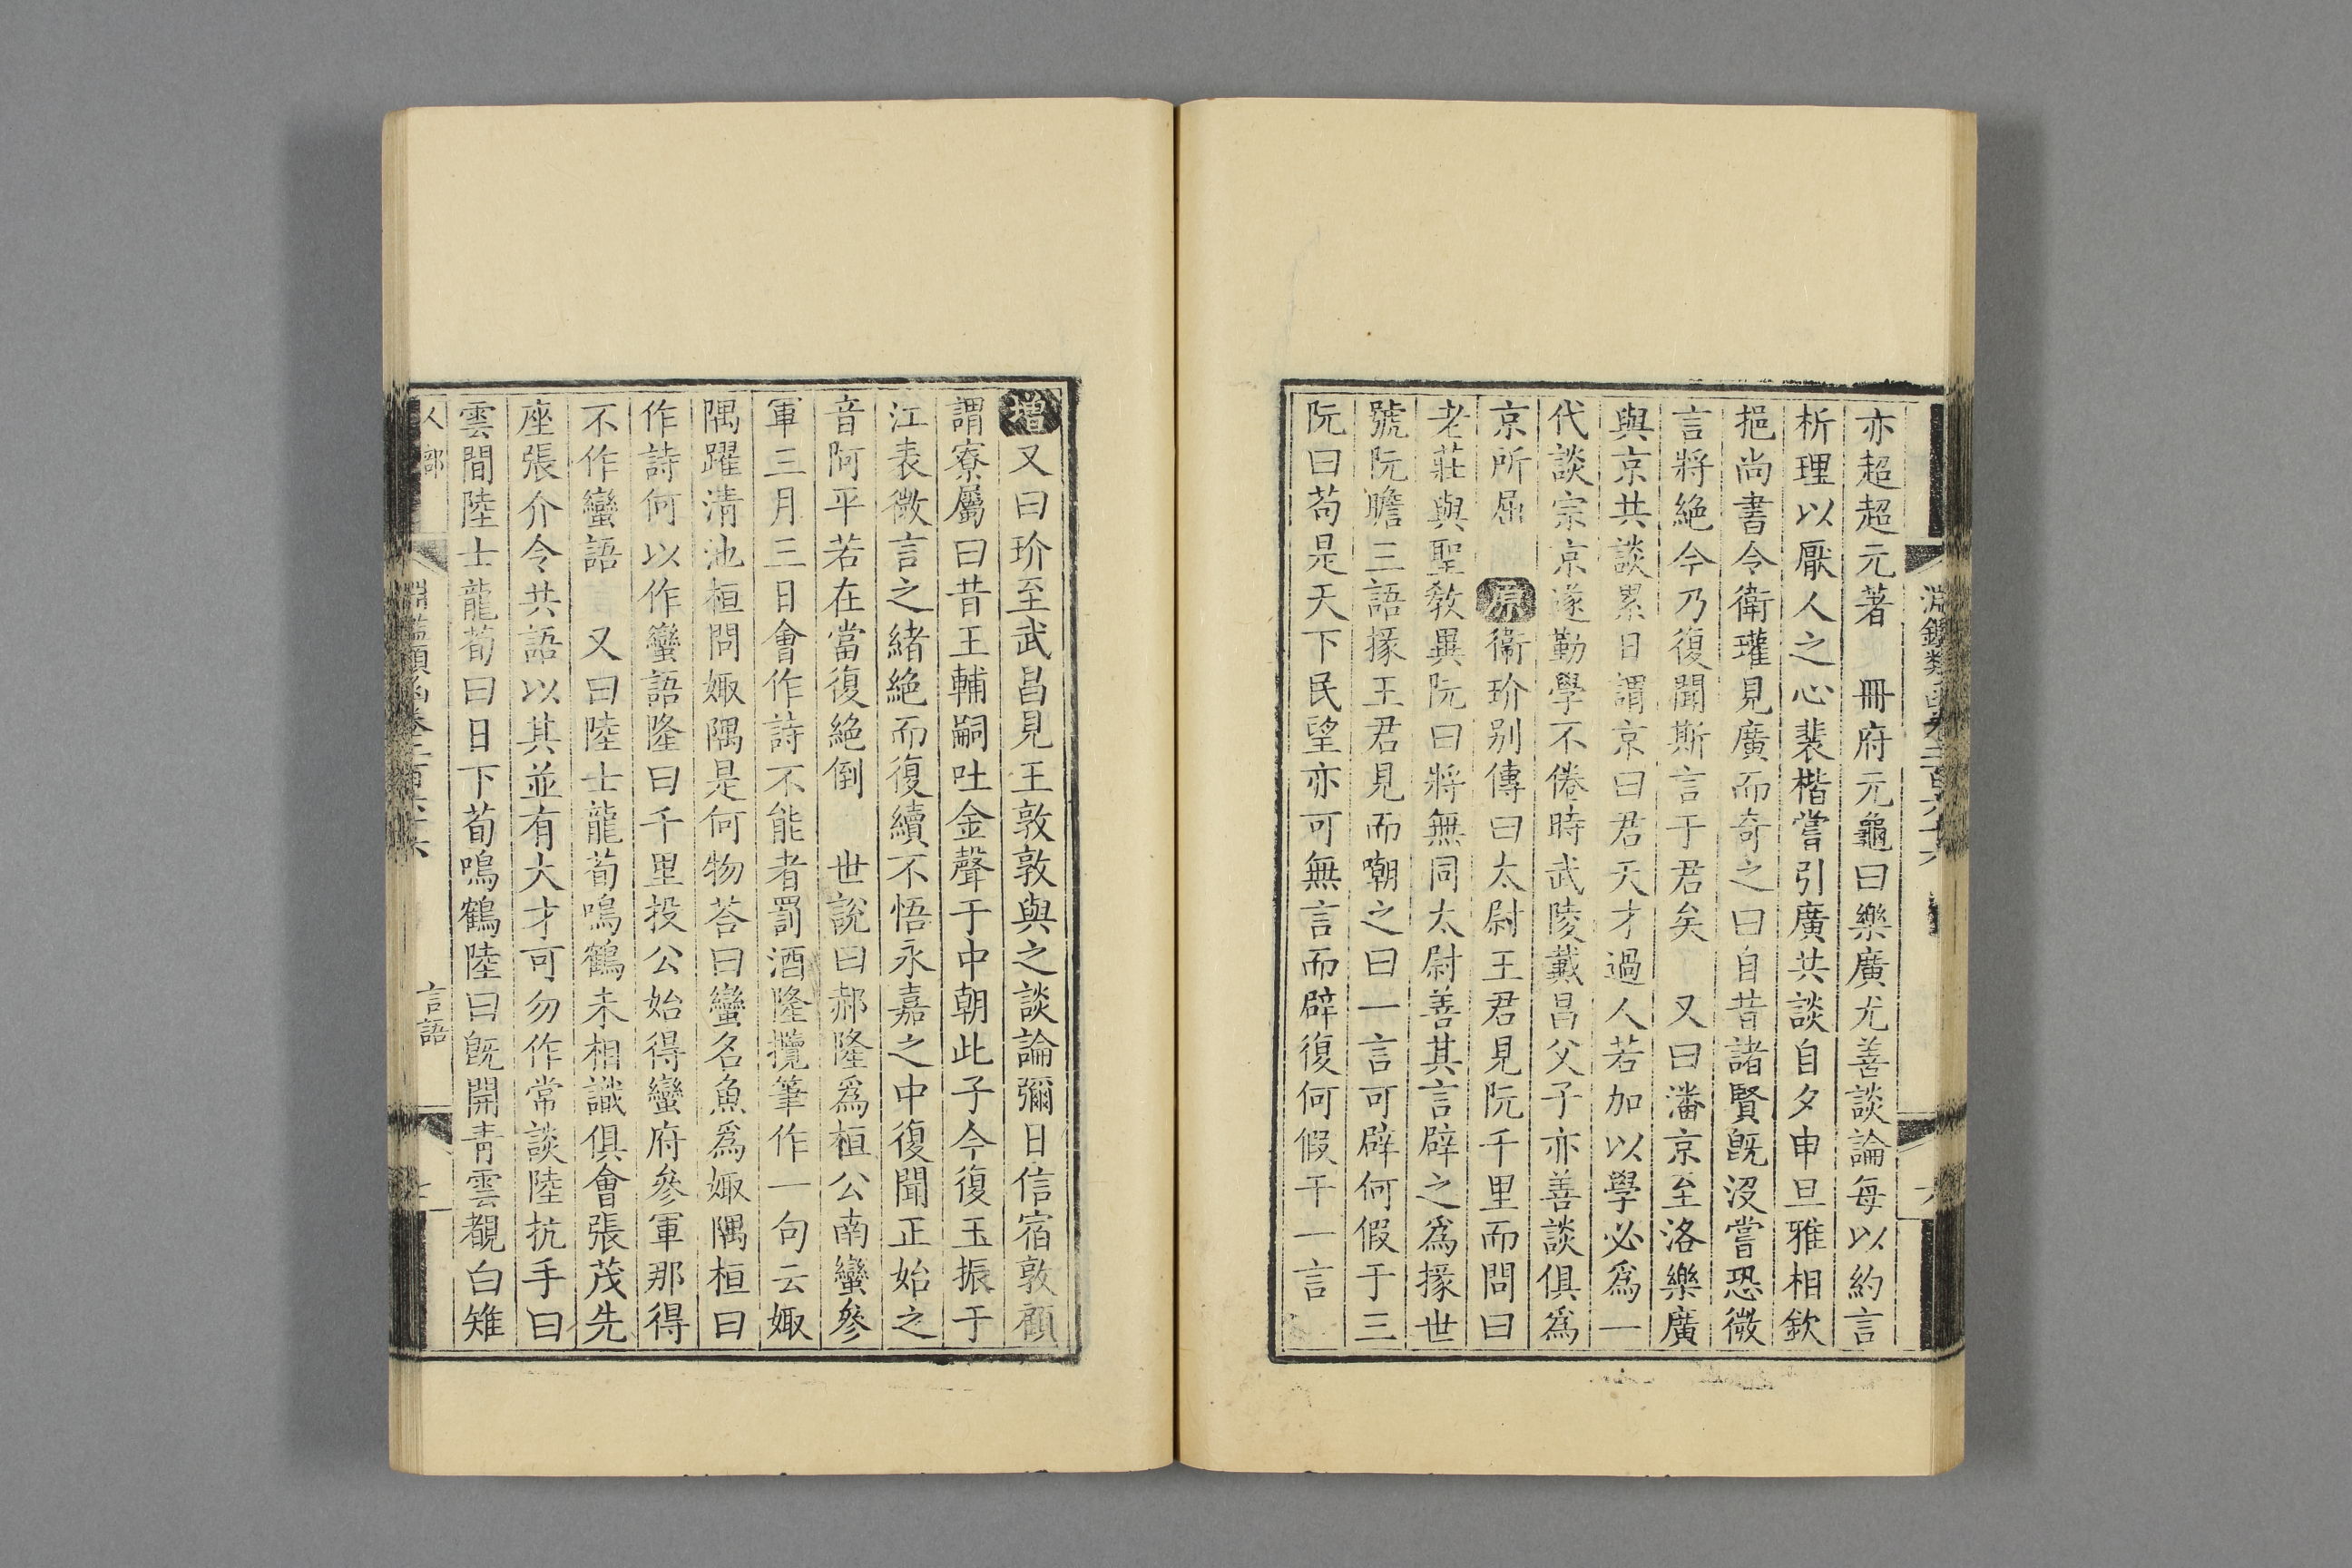 淵鑑類函卷二百六十六
六
亦超超元著　冊府元龜曰樂廣尤善談論每以約言
析理以厭人之心裴楷嘗引廣共談自夕申旦雅相欽
挹尚書令衛瓘見廣而奇之曰自昔諸賢旣沒嘗恐微
言將絕今乃復聞斯言于君矣　又曰潘京至洛樂廣
與京共談累日謂京曰君天才過人若加以學必爲一
代談宗京遂勤學不倦時武陵戴昌父子亦善談俱爲
京所屈　原衞玠別傳曰太尉王君見阮千里而問曰
老莊與聖敎異阮曰將無同太尉善其言辟之爲掾世
號阮瞻三語掾王君見而嘲之曰一言可辟何假于三
阮曰苟是天下民望亦可無言而辟復何假于一言
增又曰玠至武昌見王敦敦與之談論彌日信宿敦顧
謂寮屬曰昔王輔嗣吐金聲于中朝此子今復玉振于
江表微言之緒絕而復續不悟永嘉之中復聞正始之
音阿平若在當復絕倒　世說曰郝隆爲桓公南蠻參
軍三月三日會作詩不能者罰酒隆攬筆作一句云娵
隅躍淸池桓問娵隅是何物荅曰蠻名魚爲娵隅桓曰
作詩何以作蠻語隆曰千里投公始得蠻府參軍那得
不作蠻語　又曰陸士龍荀鳴鶴未相識俱會張茂先
座張介令共語以其並有大才可勿作常談陸抗手曰
雲間陸士龍荀曰日下荀鳴鶴陸曰旣開靑雲覩白雉
人部
淵鑑類函卷二百六十六
言語
七